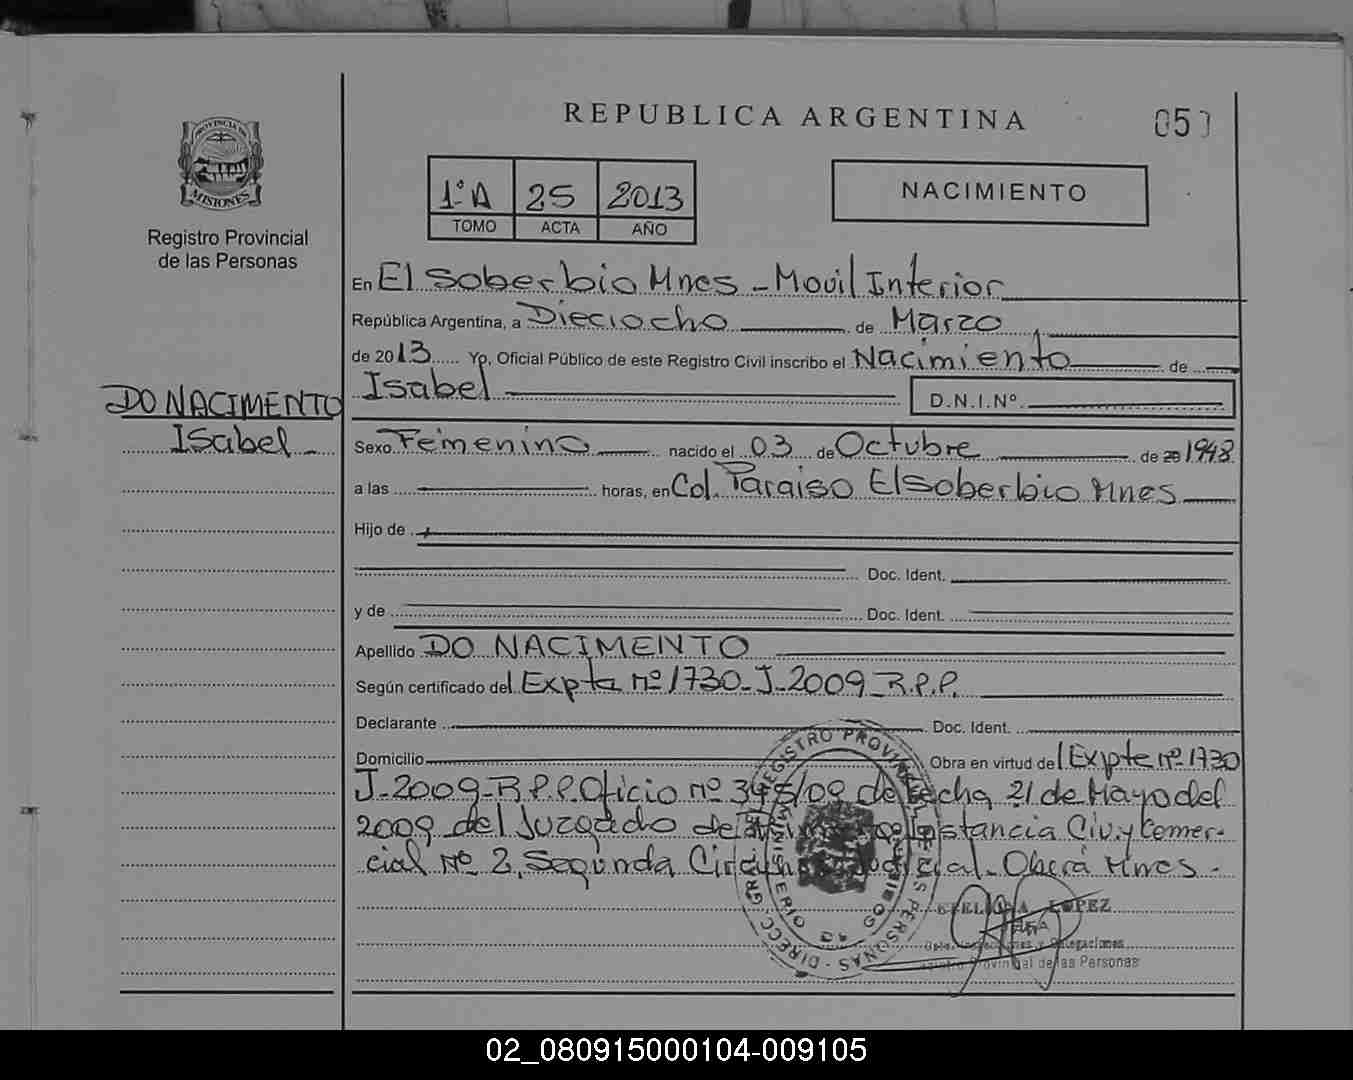 REPUBLICA ARGENTINA
PROVINCIA DE
MISIONES
Registro Provincial
de las Personas
1º A 25 2013
TOMO ACTA AÑO
NACIMIENTO
En El Soberbio Mnes - Movil Interior
República Argentina, a Dieciocho de Marzo
de 2013 Yo, Oficial Público de este Registro Civil inscribo el Nacimiento de
Isabel D.N.I.Nº
DO NACIMENTO
Isabel
Sexo Femenino nacido el 03 de Octubre de 1948
a las horas, en Col. Paraiso El Soberbio Mnes
Hijo de
Doc. Ident.
y de Doc. Ident.
Apellido DO NACIMENTO
Según certificado del Expte nº 1730-J-2009-R.P.P.
Declarante Doc. Ident.
Domicilio Obra en virtud del Expte nº 1730
J-2009-R.P.P. Oficio nº de fecha 21 de Mayo del
2009 del Juzgado de Instancia Civ. y Comer-
cial Nº 2, Segunda Judicial - Oberá Mnes -
LOPEZ
Delegaciones
Provincial de las Personas
02_080915000104-009105